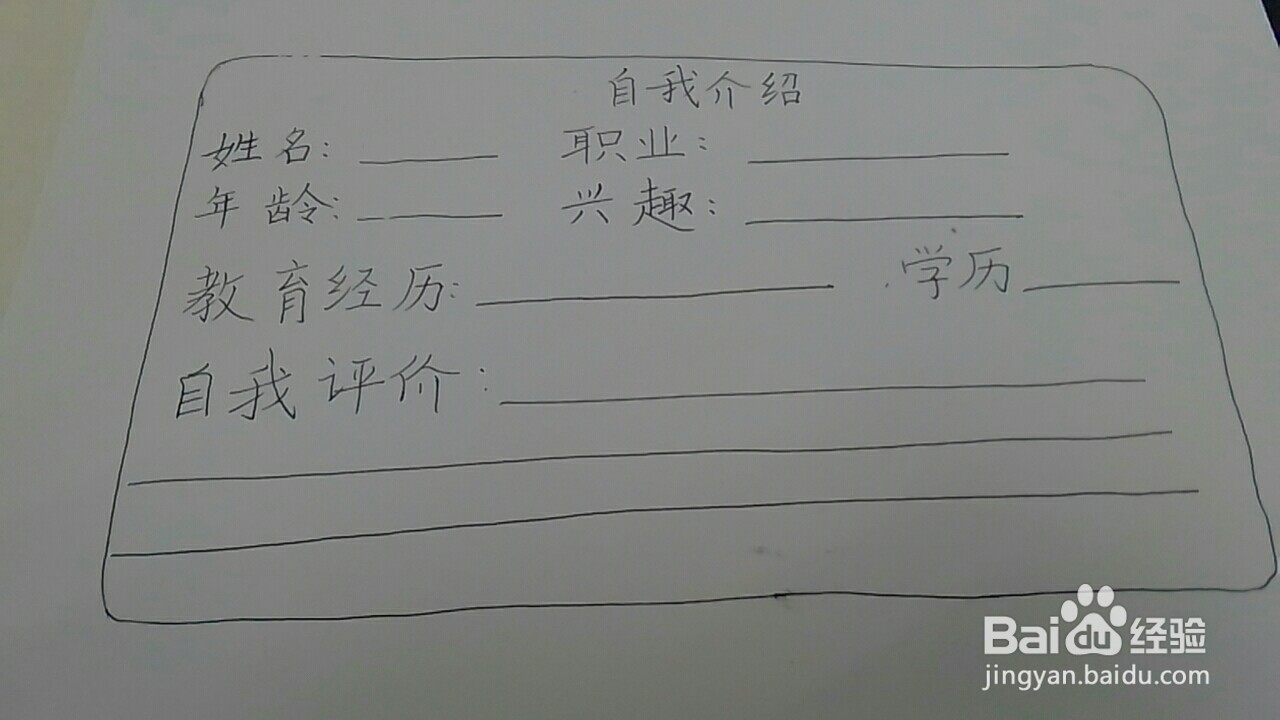 自我介绍
姓名: 职业:
年龄: 兴趣:
教育经历: 学历
自我评价:
Bai du 经验
jingyan.baidu.com